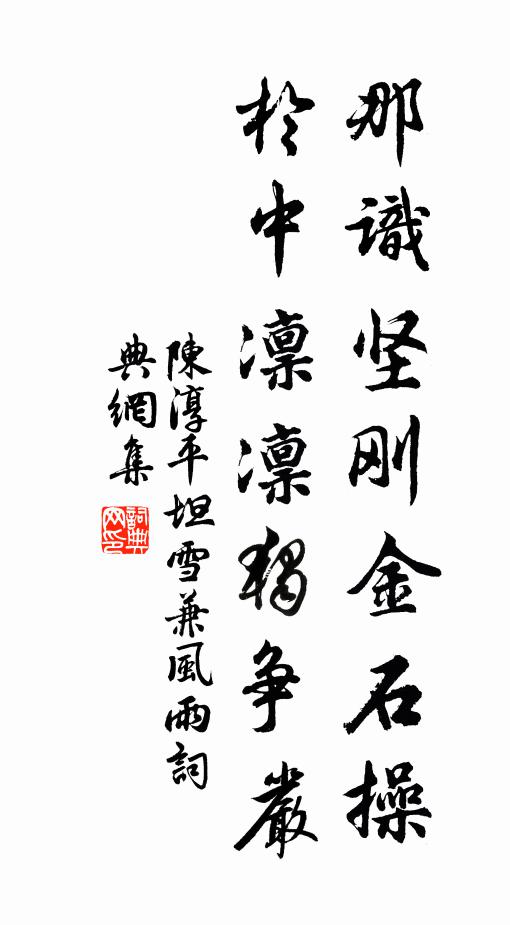 那識坚刚金石操
於中凛凛獨争嚴
陳淳平坦雪兼風雨詞
典網集
詞典网印